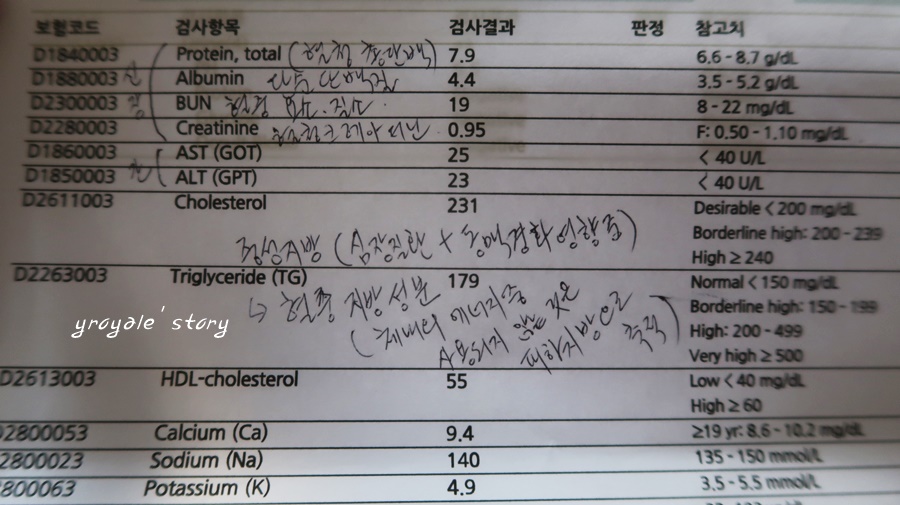 보험코드 검사항목 검사결과 판정 참고치
D1840003 Protein, total (혈청 총단백) 7.9 6.6 - 8.7 g/dL
D1880003 Albumin 4.4 3.5 - 5.2 g/dL
D2300003 BUN 19 8 - 22 mg/dL
D2280003 Creatinine 크레아티닌 0.95 F: 0.50 - 1.10 mg/dL
D1860003 AST (GOT) 25 < 40 U/L
D1850003 간 ALT (GPT) 23 < 40 U/L
D2611003 Cholesterol 231 Desirable < 200 mg/dL
Borderline high: 200 - 239
(심장질환 + 동맥경화 영향줌)
High ≥ 240
D2263003 Triglyceride (TG) 179 Normal < 150 mg/dL
↳ 혈중 지방 성분
Borderline high: 150 - 199
yroyale' story
(체내의 에너지중
High: 200 - 499
사용되지 않는 것은
피하지방으로 축적)
Very high ≥ 500
D2613003 HDL-cholesterol 55 Low < 40 mg/dL
High ≥ 60
D2800053 Calcium (Ca) 9.4 ≥19 yr: 8.6 - 10.2 mg/dL
2800023 Sodium (Na) 140 135 - 150 mmol/L
800063 Potassium (K) 4.9 3.5 - 5.5 mmol/L